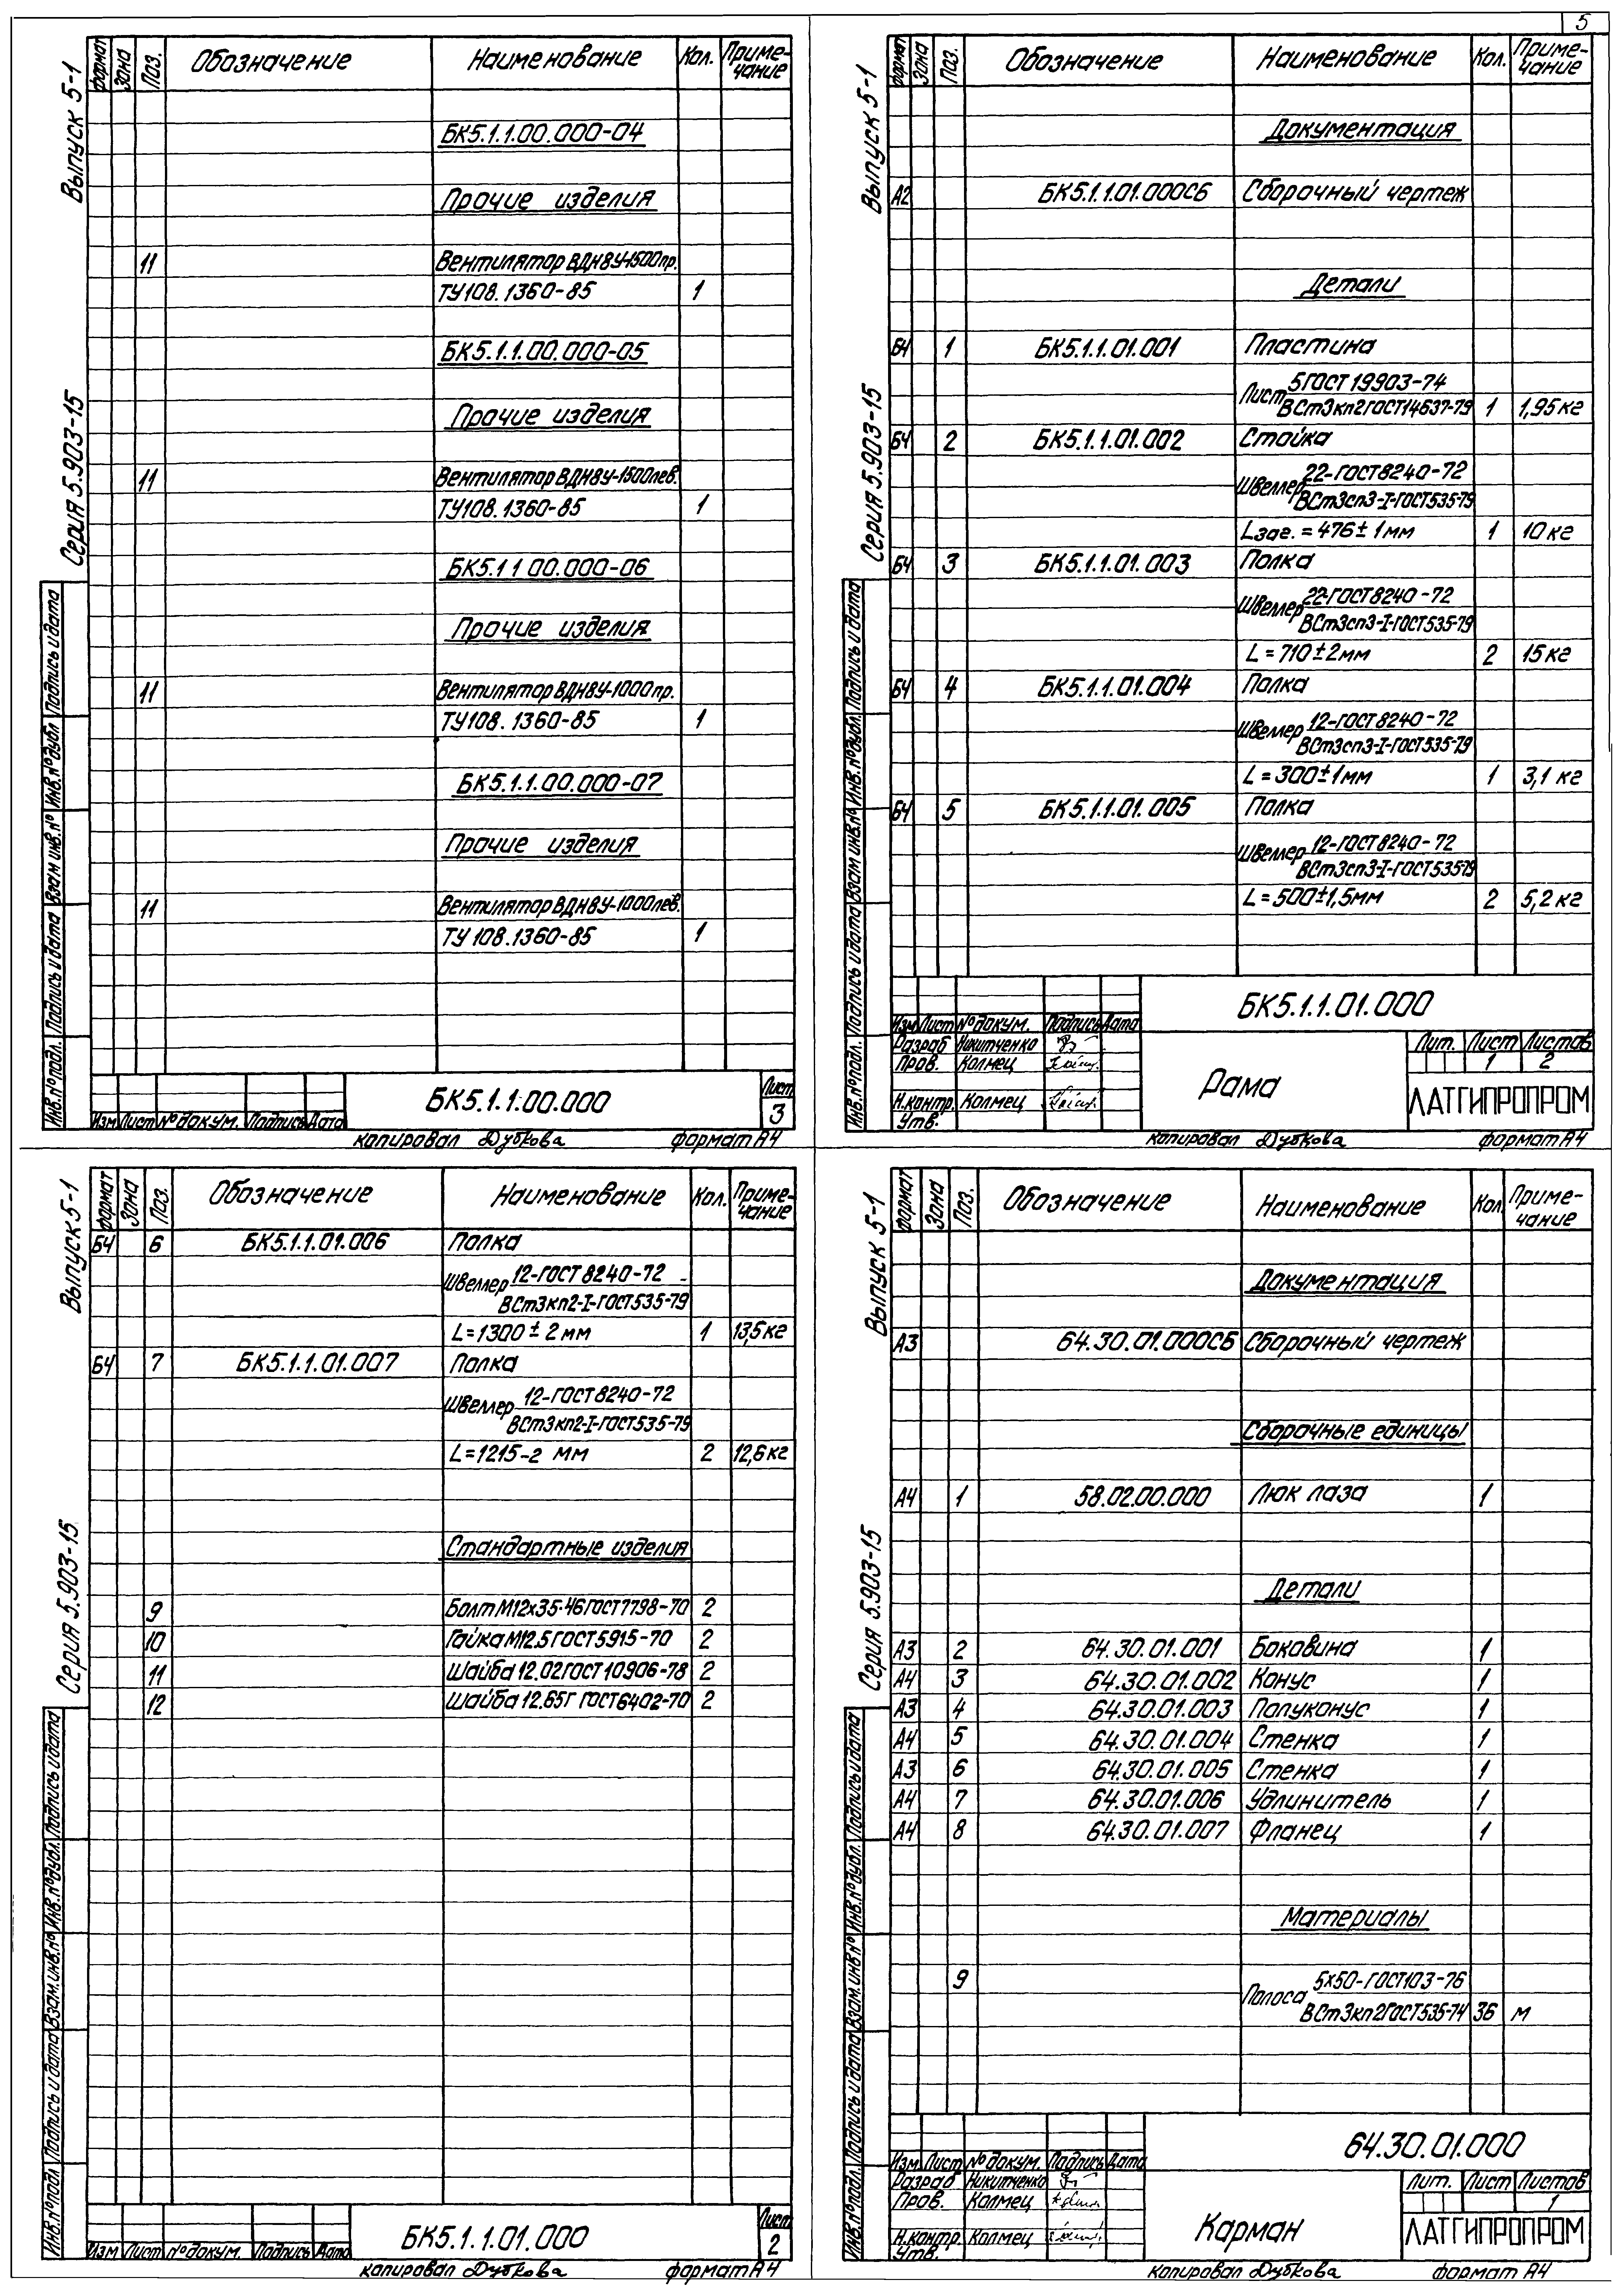 5
Выпуск 5-1
Серия 5.903-15
Формат Зона Поз. Обозначение Наименование Кол. Приме-
чание
БК5.1.1.00.000-04
Прочие изделия
11 Вентилятор ВДН8У-1500пр.
ТУ108.1360-85 1
БК5.1.1.00.000-05
Прочие изделия
11 Вентилятор ВДН8У-1500лев.
ТУ108.1360-85 1
БК5.1 1 00.000-06
Прочие изделия
11 Вентилятор ВДН8У-1000пр.
ТУ108.1360-85 1
БК5.1.1.00.000-07
Прочие изделия
11 Вентилятор ВДН8У-1000лев.
ТУ 108.1360-85 1
Инв.№подл. Подпись и дата Взам инв.№ Инв.№дубл Подпись и дата
Изм Лист №докум. Подпись Дата
БК5.1.1.00.000
Лист
3
копировал Дубкова формат А4
Выпуск 5-1
Серия 5.903-15
Формат Зона Поз. Обозначение Наименование Кол. Приме-
чание
Документация
А2 БК5.1.1.01.000СБ Сборочный чертеж
Детали
БЧ 1 БК5.1.1.01.001 Пластина
Лист 5ГОСТ19903-74
ВСт3кп2ГОСТ14637-79 1 1,95кг
БЧ 2 БК5.1.1.01.002 Стойка
Швеллер 22-ГОСТ8240-72
ВСт3сп3-I-ГОСТ535-79
Lзаг.=476±1мм 1 10кг
БЧ 3 БК5.1.1.01.003 Полка
Швеллер 22-ГОСТ8240-72
ВСт3сп3-I-ГОСТ535-79
L=710±2мм 2 15кг
БЧ 4 БК5.1.1.01.004 Полка
Швеллер 12-ГОСТ8240-72
ВСт3сп3-I-ГОСТ535-79
L=300±1мм 1 3,1 кг
БЧ 5 БК5.1.1.01.005 Полка
Швеллер 12-ГОСТ8240-72
ВСт3сп3-I-ГОСТ535-79
L=500±1,5мм 2 5,2кг
Инв.№подл. Подпись и дата Взам инв.№ Инв.№дубл. Подпись и дата
БК5.1.1.01.000
Изм Лист №докум. Подпись Дата
Разраб Никитченко
Пров. Колмец
Н.контр. Колмец
Утв.
Рама
Лит. Лист Листов
1 2
ЛАТГИПРОПРОМ
копировал Дубкова формат А4
Выпуск 5-1
Серия 5.903-15
Формат Зона Поз. Обозначение Наименование Кол. Приме-
чание
БЧ 6 БК5.1.1.01.006 Полка
Швеллер 12-ГОСТ8240-72
ВСт3кп2-I-ГОСТ535-79
L=1300±2мм 1 13,5кг
БЧ 7 БК5.1.1.01.007 Полка
Швеллер 12-ГОСТ8240-72
ВСт3кп2-I-ГОСТ535-79
L=1215-2 мм 2 12,6кг
Стандартные изделия
9 Болт М12х35.46ГОСТ7798-70 2
10 Гайка М12.5ГОСТ5915-70 2
11 Шайба 12.02ГОСТ10906-78 2
12 Шайба 12.65Г ГОСТ6402-70 2
Инв.№подл Подпись и дата Взам.инв.№ Инв.№дубл. Подпись и дата
Изм Лист №докум. Подпись Дата
БК5.1.1.01.000
Лист
2
копировал Дубкова формат А4
Выпуск 5-1
Серия 5.903-15
Формат Зона Поз. Обозначение Наименование Кол. Приме-
чание
Документация
А3 64.30.01.000СБ Сборочный чертеж
Сборочные единицы
А4 1 58.02.00.000 Люк лаза 1
Детали
А3 2 64.30.01.001 Боковина 1
А4 3 64.30.01.002 Конус 1
А3 4 64.30.01.003 Полуконус 1
А4 5 64.30.01.004 Стенка 1
А3 6 64.30.01.005 Стенка 1
А4 7 64.30.01.006 Удлинитель 1
А4 8 64.30.01.007 Фланец 1
Материалы
9 Полоса 5х50-ГОСТ103-76
ВСт3кп2ГОСТ535-74 36 м
Инв.№подл. Подпись и дата Взам.инв№ Инв.№дубл. Подпись и дата
64.30.01.000
Изм Лист №докум. Подпись Дата
Разраб Никитченко
Пров. Колмец
Н.контр. Колмец
Утв.
Карман
Лит. Лист Листов
1
ЛАТГИПРОПРОМ
копировал Дубкова формат А4